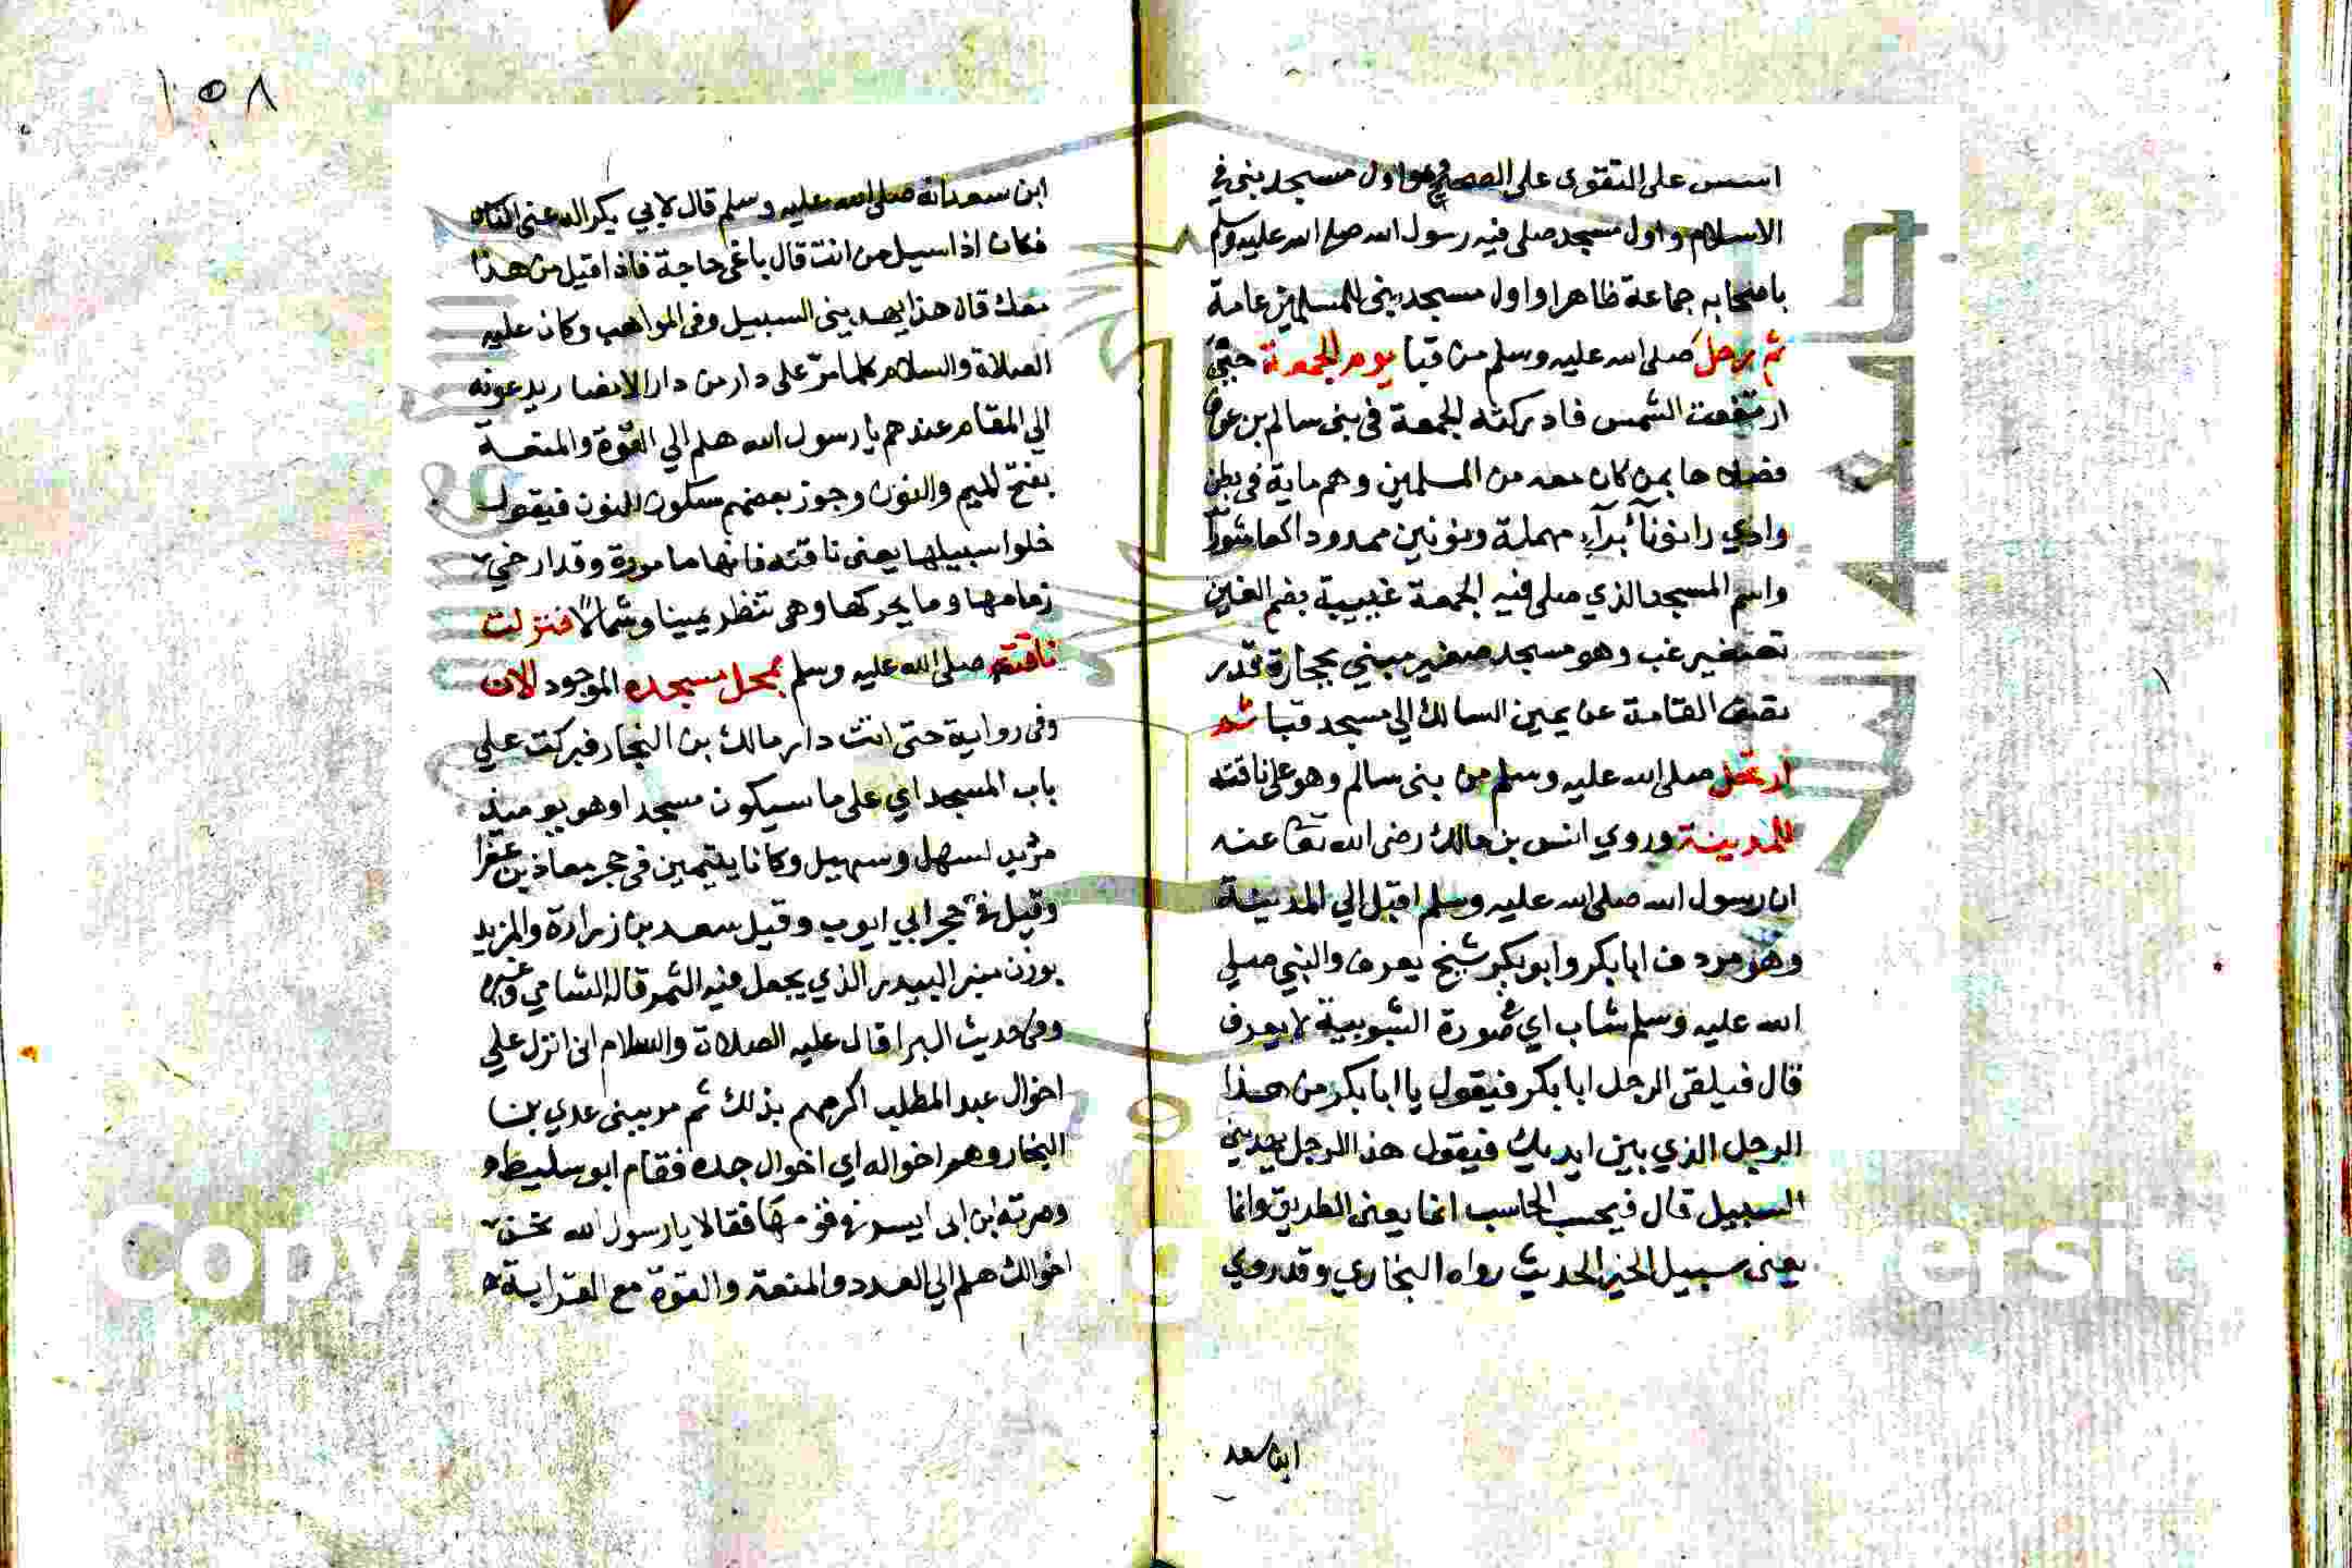 اسس على التقوى على الصحيح وهو اول مسجد بني في
الاسلام واول مسجد صلى فيه رسول الله صلى الله عليه وسلم
باصحابه جماعة ظاهرا واول مسجد بني للمسلمين عامة
ثم رحل صلى الله عليه وسلم من قبا يوم الجمعة حتى
ارتفعت الشمس فادركته الجمعة في بني سالم بن عوف
فصلاها بمن كان معه من المسلمين وهم ماية في بطن
وادي رانوناء براء مهملة ونونين ممدودا كعاشورا
واسم المسجد الذي صلى فيه الجمعة غبيبة بضم الغين
تصغير غب وهو مسجد صغير مبني بحجارة قدر
نصف القامة عن يمين السالك الي مسجد قبا ثم
ارتحل صلى الله عليه وسلم من بني سالم وهو على ناقته
للمدينة وروي انس بن مالك رضي الله تعا عنه
ان رسول الله صلى الله عليه وسلم اقبل الي المدينة
وهو مردف ابا بكر وابو بكر شيخ يعرف والنبي صلي
الله عليه وسلم شاب اي في صورة الشبوبية لا يعرف
قال فيلقى الرجل ابا بكر فيقول يا ابا بكر من هذا
الرجل الذي بين ايديك فيقول هذا الرجل يهديني
السبيل قال فيحسب الحاسب انما يعني الطريق وانما
يعني سبيل الخير الحديث رواه البخاري وقد روي
ابن سعد
١٥٨
ابن سعد انه صلى الله عليه وسلم قال لابي بكر اله عني الناس
فكان اذا سيل من انت قال باغي حاجة فاذا قيل من هذا
معك قال هذا يهديني السبيل وفي المواهب وكان عليه
الصلاة والسلام كلما مر على دار من دار الانصار يدعونه
الي المقام عندهم يا رسول الله هلم الي القوة والمنعة
بفتح الميم والنون وجوز بعضهم سكون النون فيقول
خلوا سبيلها يعني ناقته فانها مامورة وقد ارخي
زمامها وما يحركها وهي تنظر يمينا وشمالا فنزلت
ناقته صلى الله عليه وسلم بمحل مسجده الموجود الان
وفي رواية حتى اتت دار مالك بن النجار فبركت علي
باب المسجد اي على ما سيكون مسجدا وهو يوميذ
مربد لسهل وسهيل وكانا يتيمين في حجر معاذ بن عفرا
وقيل في حجر ابي ايوب وقيل سعد بن زرارة والمربد
بوزن منبر البيدر الذي يجعل فيه التمر قاله الشامي وغيره
وفي حديث البرا قال عليه الصلاة والسلام اني انزل علي
اخوال عبد المطلب اكرمهم بذلك ثم مر ببني عدي بن
النجار وهم اخواله اي اخوال جده فقام ابو سليط و
وصرته ابن ابي انيس في قومهما فقالا يا رسول الله نحن
اخوالك هلم الي العدد والمنعة والقوة مع القرابة